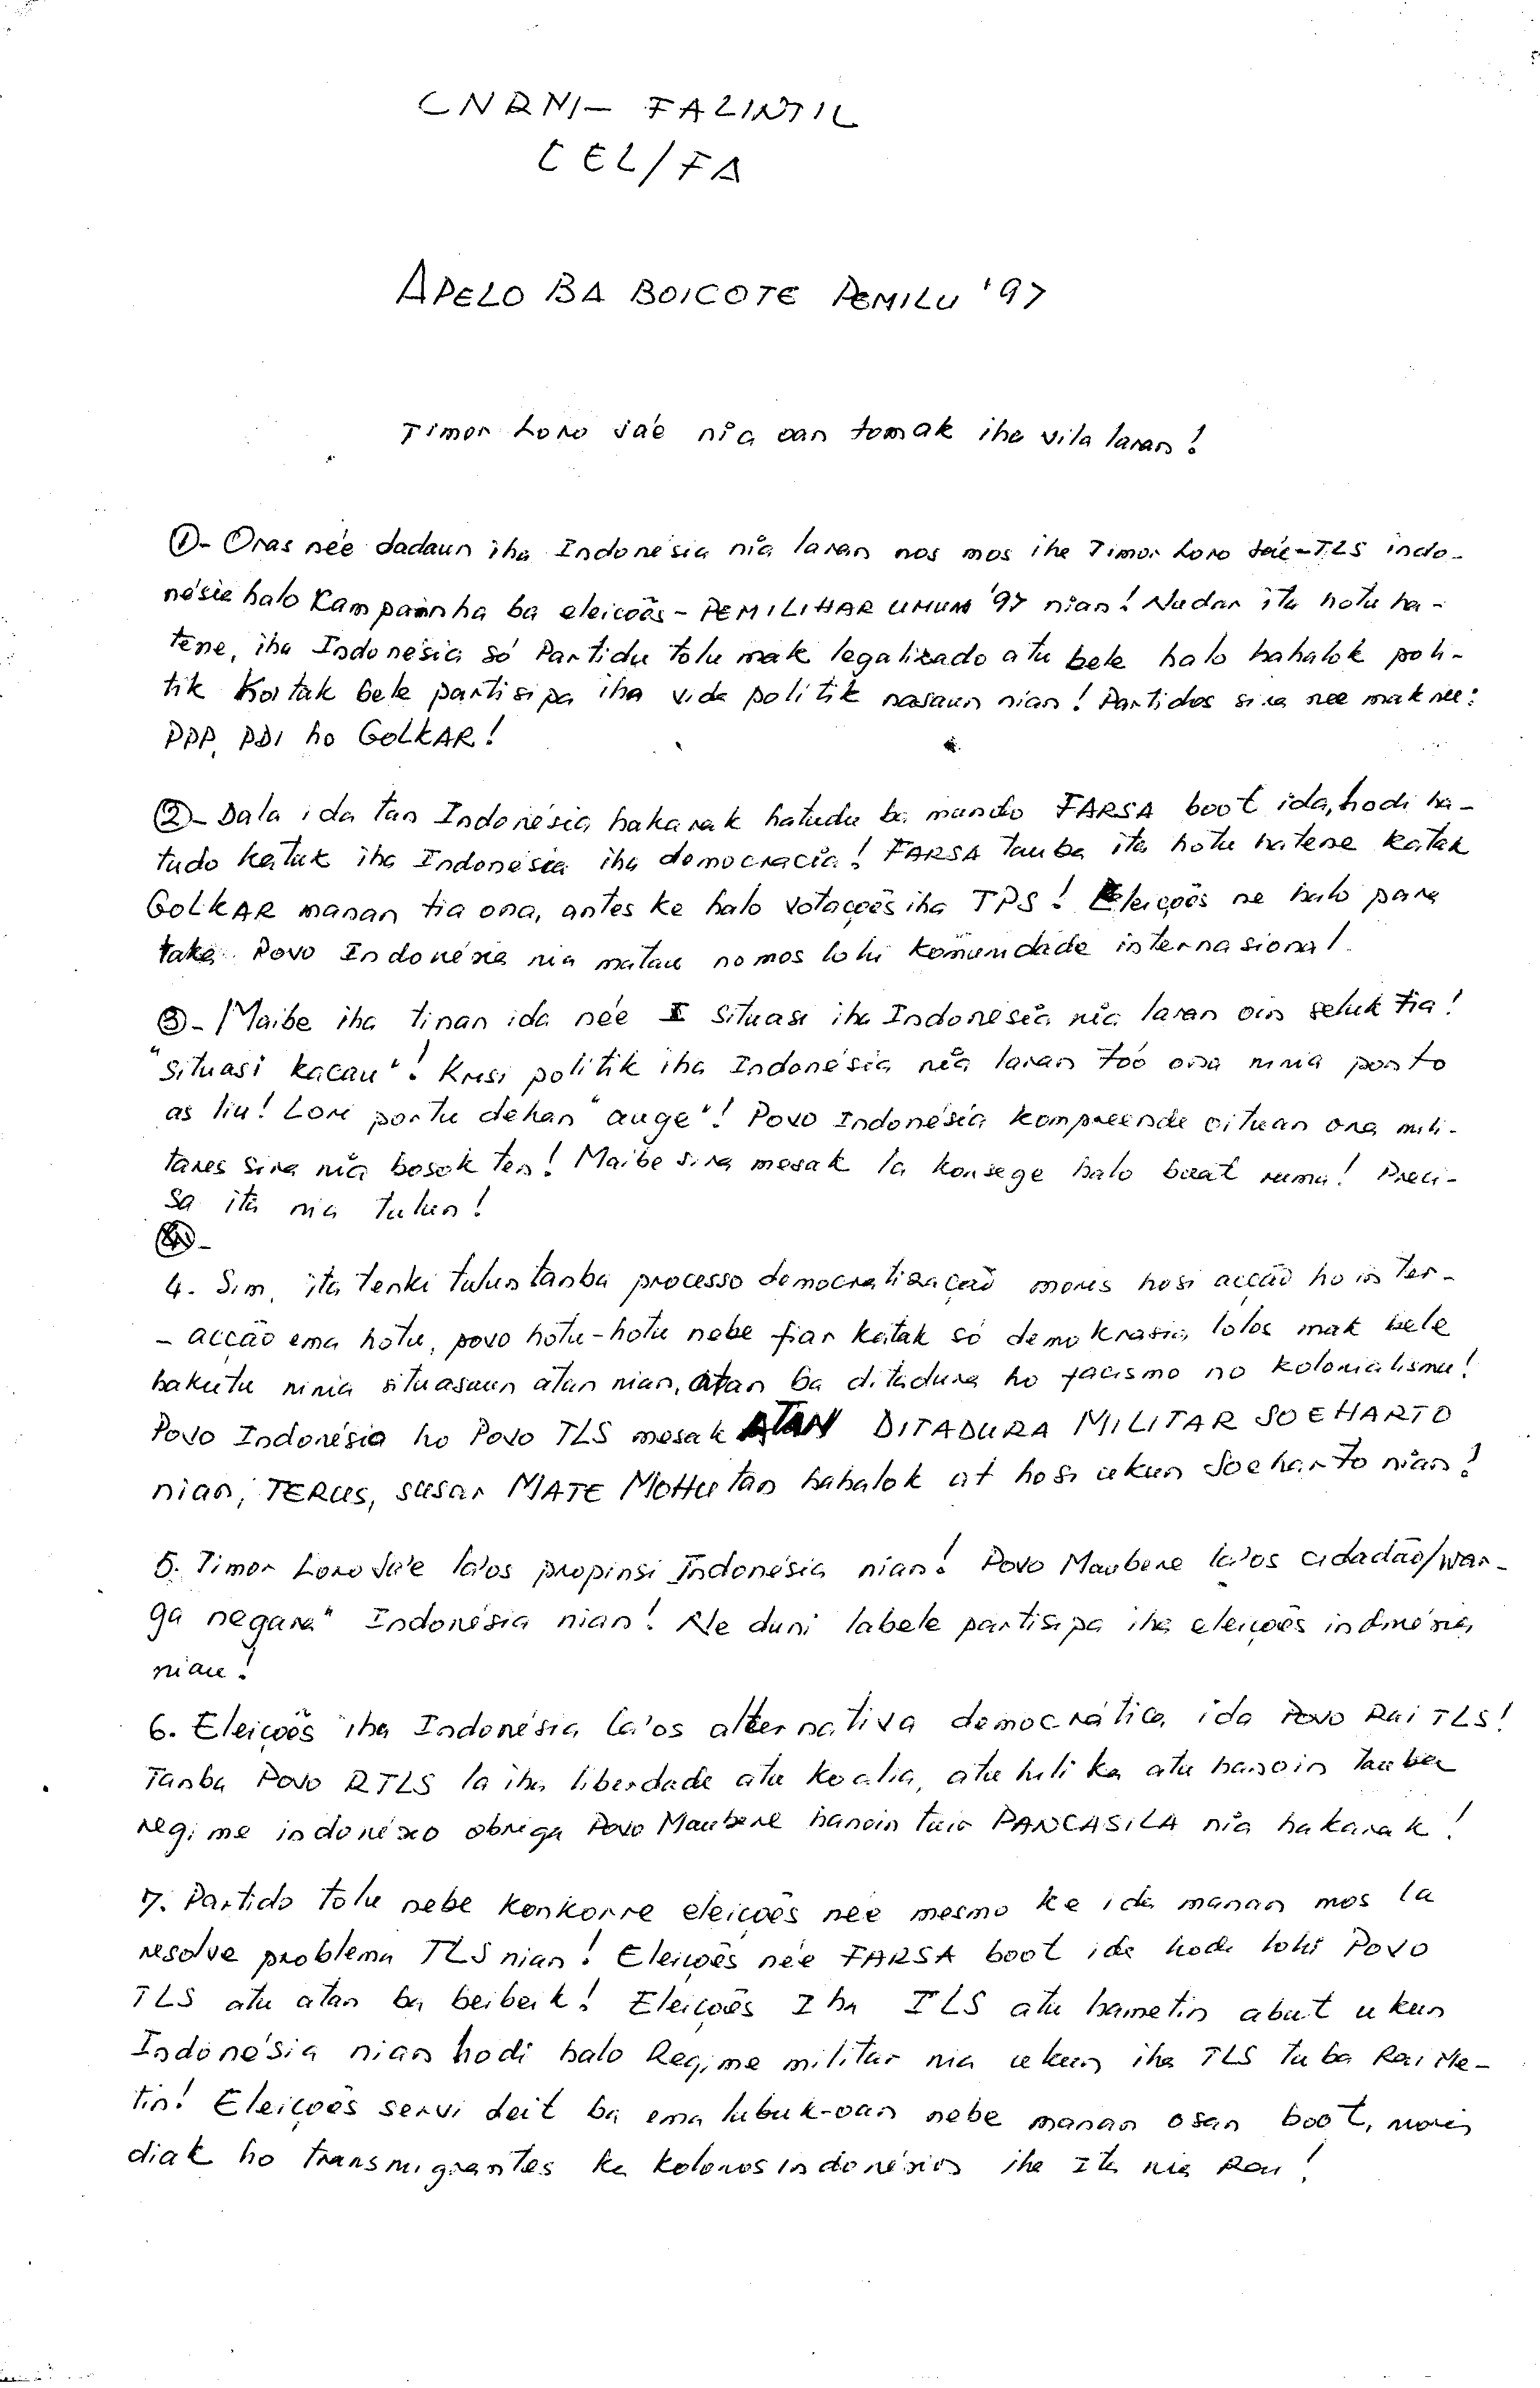 CNRM- FALINTIL
CEL/FA
APELO BA BOICOTE PEMILU '97
Timor Loro Sáe nia oan tomak iha vila laran!
①- Oras née dadaun iha Indonésia nia laran nos mos iha Timor Loro Sáe-TLS indo-
nésia halo Kampainha ba eleicoẽs - PEMILIHAR UMUM '97 nian! Nudar ita hotu ha-
tene, iha Indonésia só Partidu tolu mak legalizado atu bele halo hahalok poli-
tik Kortak bele partisipa iha vida politik nasaun nian! Partidos sira nee mak nee:
PPP, PDI ho GOLKAR!
②- Dala ida tan Indonésia hakarak hatudu ba mundo FARSA boot ida, hodi ha-
tudo katak iha Indonésia iha democracia! FARSA tanba ita hotu hatene katak
GOLKAR manan tia ona, antes ke halo votaçoẽs iha TPS! Eleiçoẽs ne halo para
taka Povo Indonésia nia matan no mos lohi komunidade internasional.
③- Maibe iha tinan ida née situasi iha Indonésia nia laran oin seluk tia!
"situasi kacau"! Krisi politik iha Indonésia nia laran too ona ninia ponto
as liu! Lori portu dehan "auge"! Povo Indonésia kompreende oituan ona mili-
tares sira nia bosok ten! Maibe sira mesak la konsege halo buat ruma! Preci-
sa ita nia tulun!
4. Sim, ita tenki tulun tanba processo democratizaçaõ moris hosi acção ho inter-
- acção ema hotu, povo hotu-hotu nebe fiar katak só demokrasia lolos mak bele
hakutu ninia situasaun atan nian, atan ba ditadura ho facismo no kolonialismu!
Povo Indonésia ho Povo TLS mesak ATAN DITADURA MILITAR SOEHARTO
nian, TERUS, susar MATE MOHU tan hahalok at hosi ukun Soeharto nian!
5. Timor Loro Sa'e la'os propinsi Indonésia nian! Povo Maubere la'os cidadão/war-
ga negara" Indonésia nian! Ne duni labele partisipa iha eleiçoẽs indonésia
nian!
6. Eleiçoẽs iha Indonésia la'os alternativa democrática ida Povo Rai TLS!
Tanba Povo RTLS la iha liberdade atu koalia, atu hili ka atu hanoin tanba
regime indonésio obriga Povo Maubere hanoin tuir PANCASILA nia hakarak!
7. Partido tolu nebe konkorre eleiçoẽs née mesmo ke ida manan mos la
resolve problema TLS nian! Eleiçoẽs née FARSA boot ida hodi lohi Povo
TLS atu atan ba beibeik! Eleiçoẽs Iha TLS atu hametin abut ukun
Indonésia nian hodi halo Regime militar nia ukun iha TLS tuba Rai Me-
tin! Eleiçoẽs servi deit ba ema lubuk-oan nebe manan osan boot, moris
diak ho transmigrantes ka kolonos indonésios iha Ita nia Rai!